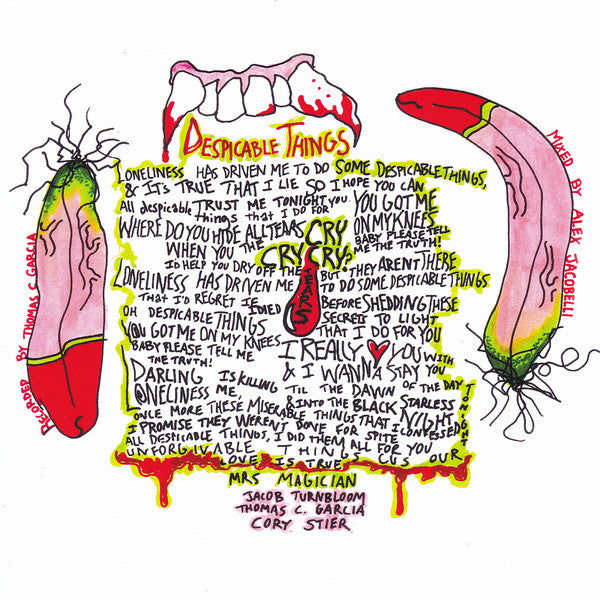 DESPICABLE THINGS
LONELINESS HAS DRIVEN ME TO DO SOME DESPICABLE THINGS,
& IT'S TRUE THAT I LIE SO I HOPE YOU CAN
All despicable TRUST ME TONIGHT. YOU GOT ME
things that I do FOR YOU ON MY KNEES
WHERE DO YOU HIDE ALL TEARS CRY BABY PLEASE TELL
WHEN YOU THE CRY CRY? ME THE TRUTH!
I'D HELP YOU DRY OFF THE TEARS BUT THEY AREN'T THERE
LONELINESS HAS DRIVEN ME TO DO SOME DESPICABLE THINGS
THAT I'D REGRET IF I DIED BEFORE SHEDDING THESE
OH DESPICABLE THINGS SECRETS TO LIGHT
YOU GOT ME ON MY KNEES THAT I DO FOR YOU
BABY PLEASE TELL ME I REALLY YOU WITH
THE TRUTH! & I WANNA STAY YOU
DARLING IS KILLING 'TIL THE DAWN OF THE DAY
LONELINESS ME, & INTO THE BLACK STARLESS NIGHT
ONCE MORE THESE MISERABLE THINGS THAT I CONFESSED TONIGHT
I PROMISE THEY WEREN'T DONE FOR SPITE
ALL DESPICABLE THINGS, I DID THEM ALL FOR YOU
UNFORGIVABLE THINGS CUS OUR
LOVE IS TRUE
MRS MAGICIAN
JACOB TURNBLOOM
THOMAS C. GARCIA
CORY STIER
RECORDED BY THOMAS C GARCIA
MIXED BY ALEX JACOBELLI